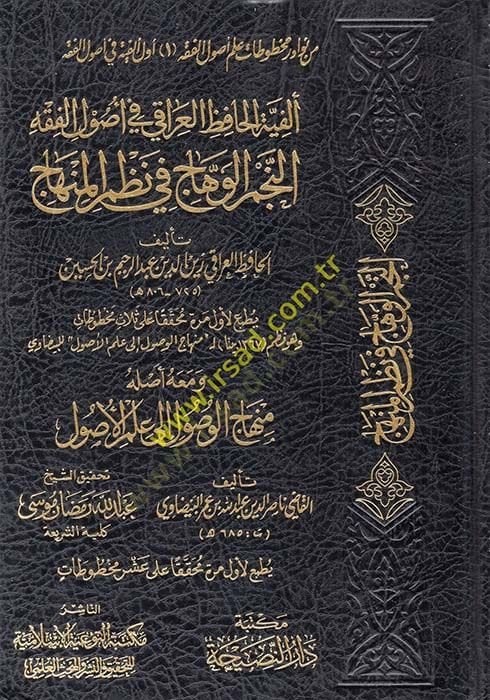 من نوادر مخطوطات علم أصول الفقه (١) أول ألفية في أصول الفقه
ألفية الحافظ العراقي في أصول الفقه
النجم الوهاج في نظم المنهاج
تأليف
الحافظ العراقي زين الدين عبد الرحيم بن الحسين
(٧٢٥ - ٨٠٦ هـ)
يطبع لأول مرة محققا على ثلاث مخطوطات
وهو نظم لـ "منهاج الوصول إلى علم الأصول" للبيضاوي
ومعه أصله
منهاج الوصول إلى علم الأصول
تأليف
القاضي ناصر الدين عبد الله بن عمر البيضاوي
(ت: ٦٨٥ هـ)
تحقيق الشيخ
عبد الله رمضان موسى
كلية الشريعة
يطبع لأول مرة محققا على عشر مخطوطات
مكتبة
دار النصيحة
الناشر
مكتبة التوعية الإسلامية
للتحقيق والنشر والبحث العلمي
النجم الوهاج في نظم المنهاج
www.irsad.com.tr